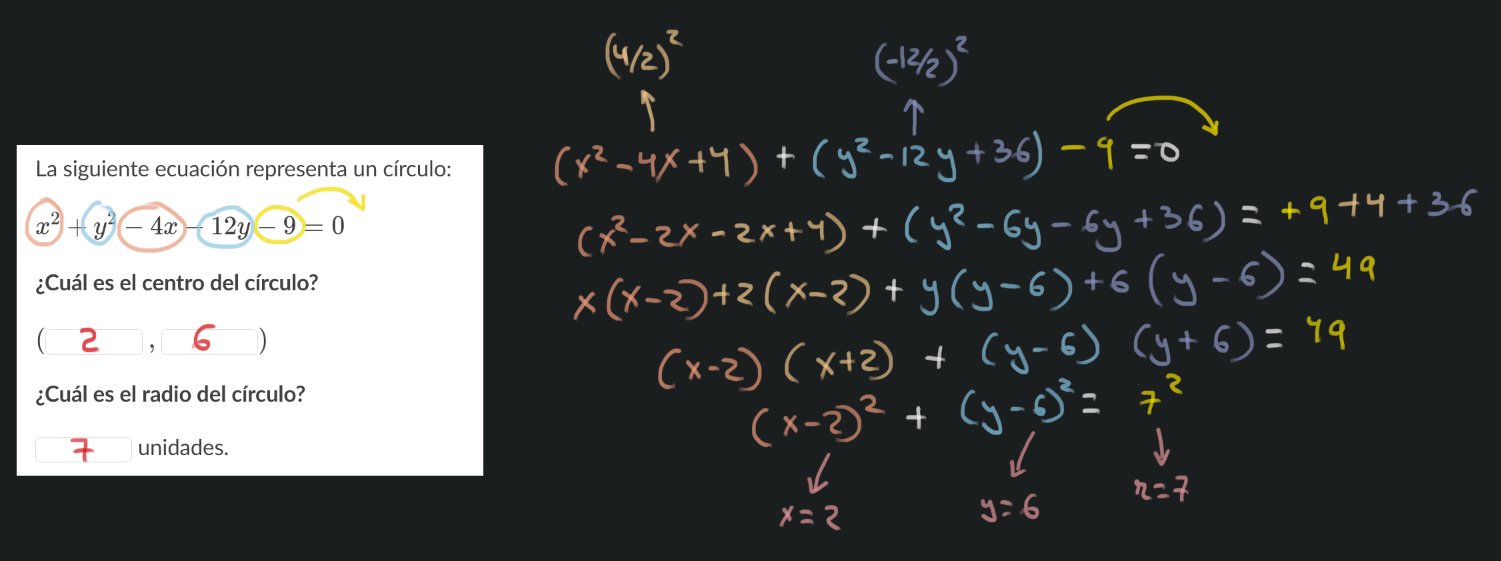 La siguiente ecuación representa un círculo:
x² + y² − 4x − 12y − 9 = 0
¿Cuál es el centro del círculo?
( 2 , 6 )
¿Cuál es el radio del círculo?
7 unidades.
(4/2)² (-12/2)²
(x²-4x+4) + (y²-12y+36) - 9 = 0
(x²-2x-2x+4) + (y²-6y-6y+36) = +9+4+36
x(x-2)+2(x-2) + y(y-6)+6(y-6) = 49
(x-2) (x+2) + (y-6) (y+6) = 49
(x-2)² + (y-6)² = 7²
x=2 y=6 r=7